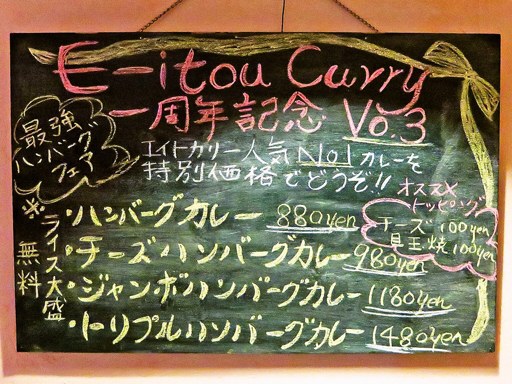 E-itou Curry
一周年記念 Vo.3
最強
ハンバーグ
フェア
エイトカリー人気No1カレーを
特別価格でどうぞ!!
オススメ
トッピング
チーズ 100yen
目玉焼100yen
・ハンバーグカレー 880yen
・チーズハンバーグカレー 980yen
・ジャンボハンバーグカレー 1180yen
・トリプルハンバーグカレー 1480yen
※ライス大盛
無料